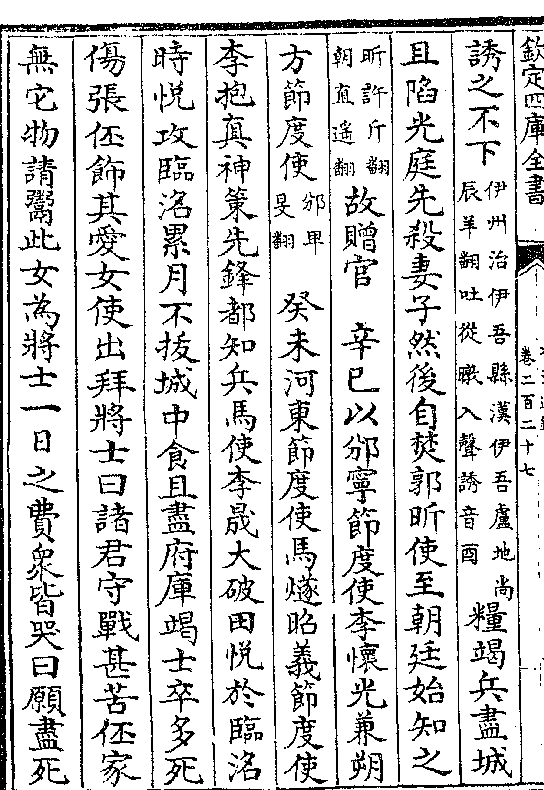 欽定四庫全書
卷二百二十七
誘之不下伊州治伊吾縣漢伊吾盧地尚辰羊翻吐從暾入聲誘音酉糧竭兵盡城
且陷光庭先殺妻子然後自焚郭昕使至朝廷始知之
昕許斤翻朝直遙翻故贈官 辛巳以邠寧節度使李懷光兼朔
方節度使邠卑旻翻 癸未河東節度使馬燧昭義節度使
李抱真神策先鋒都知兵馬使李晟大破田悅於臨洺
時悅攻臨洺累月不拔城中食且盡府庫竭士卒多死
傷張伾飾其愛女使出拜將士曰諸君守戰甚苦伾家
無它物請鬻此女為將士一日之費衆皆哭曰願盡死